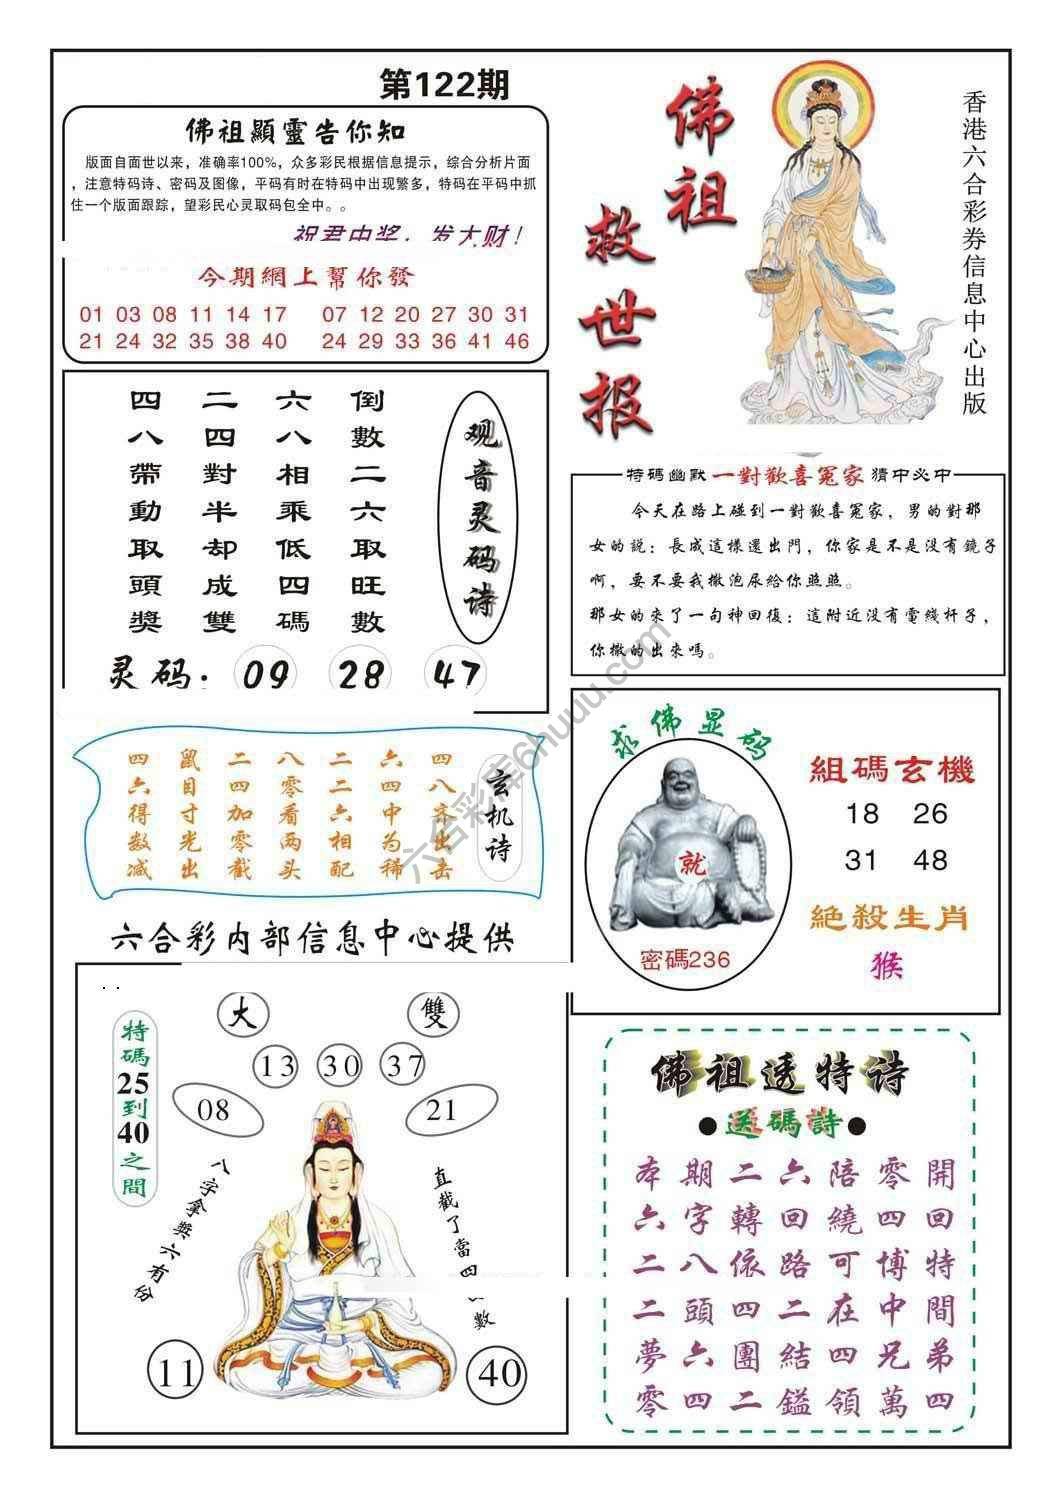 第122期
佛祖顯靈告你知
版面自面世以来，准确率100%，众多彩民根据信息提示，综合分析片面
，注意特码诗、密码及图像，平码有时在特码中出现繁多，特码在平码中抓
住一个版面跟踪，望彩民心灵取码包全中。。
祝君中奖，发大财！
今期網上幫你發
01 03 08 11 14 17 07 12 20 27 30 31
21 24 32 35 38 40 24 29 33 36 41 46
佛祖
救世报
香港六合彩券信息中心出版
观音灵码诗
倒數二六取旺數
六八相乘低四碼
二四對半却成雙
四八帶動取頭獎
灵码：09 28 47
特碼幽默 一對歡喜冤家 猜中必中
今天在路上碰到一對歡喜冤家，男的對那
女的説：長成這樣還出門，你家是不是没有鏡子
啊，要不要我撒泡尿給你照照。
那女的來了一句神回復：這附近没有電线杆子，
你撒的出來嗎。
玄机诗
四八齐出击
六四中为稀
二二六相配
八零看两头
二四加零截
鼠目寸光出
四六得数减
求佛显码
就
密碼236
組碼玄機
18 26
31 48
絕殺生肖
猴
六合彩内部信息中心提供
大 雙
13 30 37
08 21
特碼25到40之間
八字拿獎六有份
直截了當四數
11 40
佛祖透特诗
●送碼詩●
本期二六陪零開
六字轉回繞四回
二八依路可博特
二頭四二在中間
夢六團結四兄弟
零四二鎰領萬四
六合彩库6huuu.com